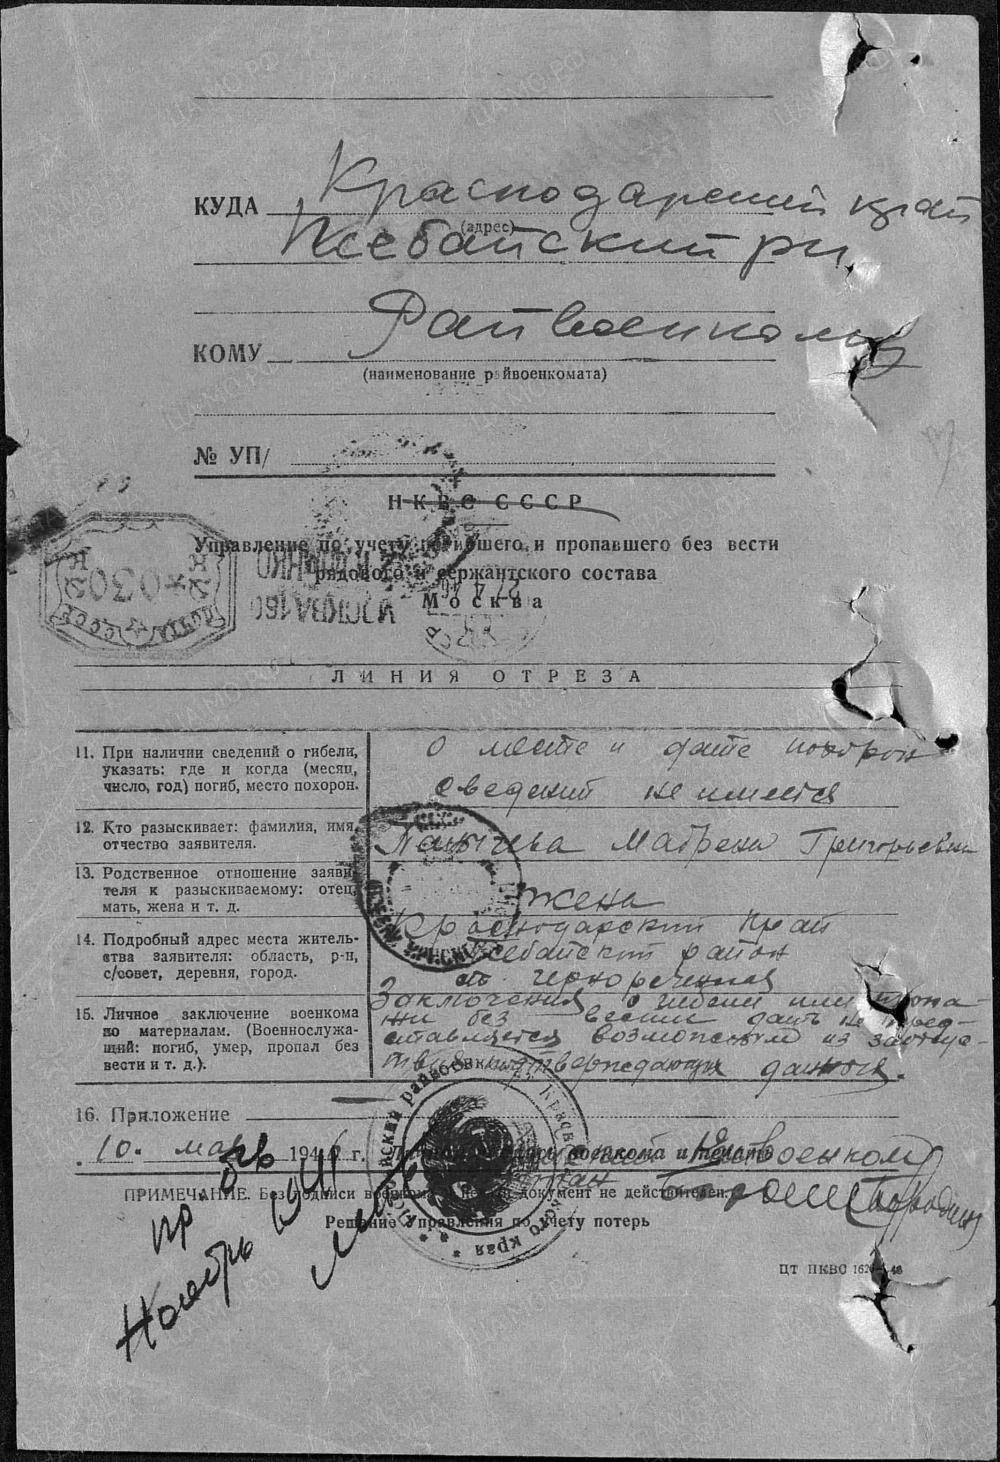 КУДА Краснодарский край
(адрес)
Псебайский рн
КОМУ Райвоенкому
(наименование райвоенкомата)
№ УП/
НКВС СССР
Управление по учету погибшего и пропавшего без вести
рядового и сержантского состава
Москва
ЛИНИЯ ОТРЕЗА
11. При наличии сведений о гибели, указать: где и когда (месяц, число, год) погиб, место похорон.
о месте и дате похорон
сведений не имеется
12. Кто разыскивает: фамилия, имя, отчество заявителя.
Матрена Григорьевна
13. Родственное отношение заявителя к разыскиваемому: отец, мать, жена и т. д.
жена
14. Подробный адрес места жительства заявителя: область, р-н, с/совет, деревня, город.
Краснодарский край
Псебайский район
ст. Чернореченская
15. Личное заключение военкома по материалам. (Военнослужащий: погиб, умер, пропал без вести и т. д.).
Заключения о гибели или пропа-
жи без вести дать не пред-
ставляется возможным из за отсуе-
твия подтверждающих данных.
16. Приложение
10. март 1946 г. Личная подпись военкома и печать
ПРИМЕЧАНИЕ. Без подписи военкома и печати документ не действителен.
Решение Управления по учету потерь
пр б/в
Ноябрь 1941
ЦТ НКВС
ПОЧТА СССР
030
МОСКВА